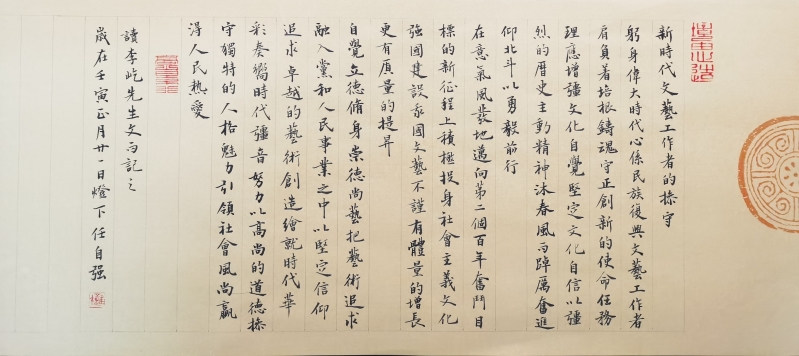 新時代文藝工作者的操守
躬身偉大時代心係民族復興文藝工作者
肩負着培根鑄魂守正創新的使命任務
理應增強文化自覺堅定文化自信以強
烈的歷史主動精神沐春風而踔厲奮進
仰北斗以勇毅前行
在意氣風發地邁向第二個百年奮鬥目
標的新征程上積極投身社會主義文化
強國建設我國文藝不謹有體量的增長
更有質量的提昇
自覺立德脩身崇德尚藝把藝術追求
融入黨和人民事業之中以堅定信仰
追求卓越的藝術創造繪就時代華
彩奏響時代強音努力以高尚的道德操
守獨特的人格魅力引領社會風尚贏
得人民熱愛
讀李屹先生文而記之
歲在壬寅正月廿一日燈下任自強